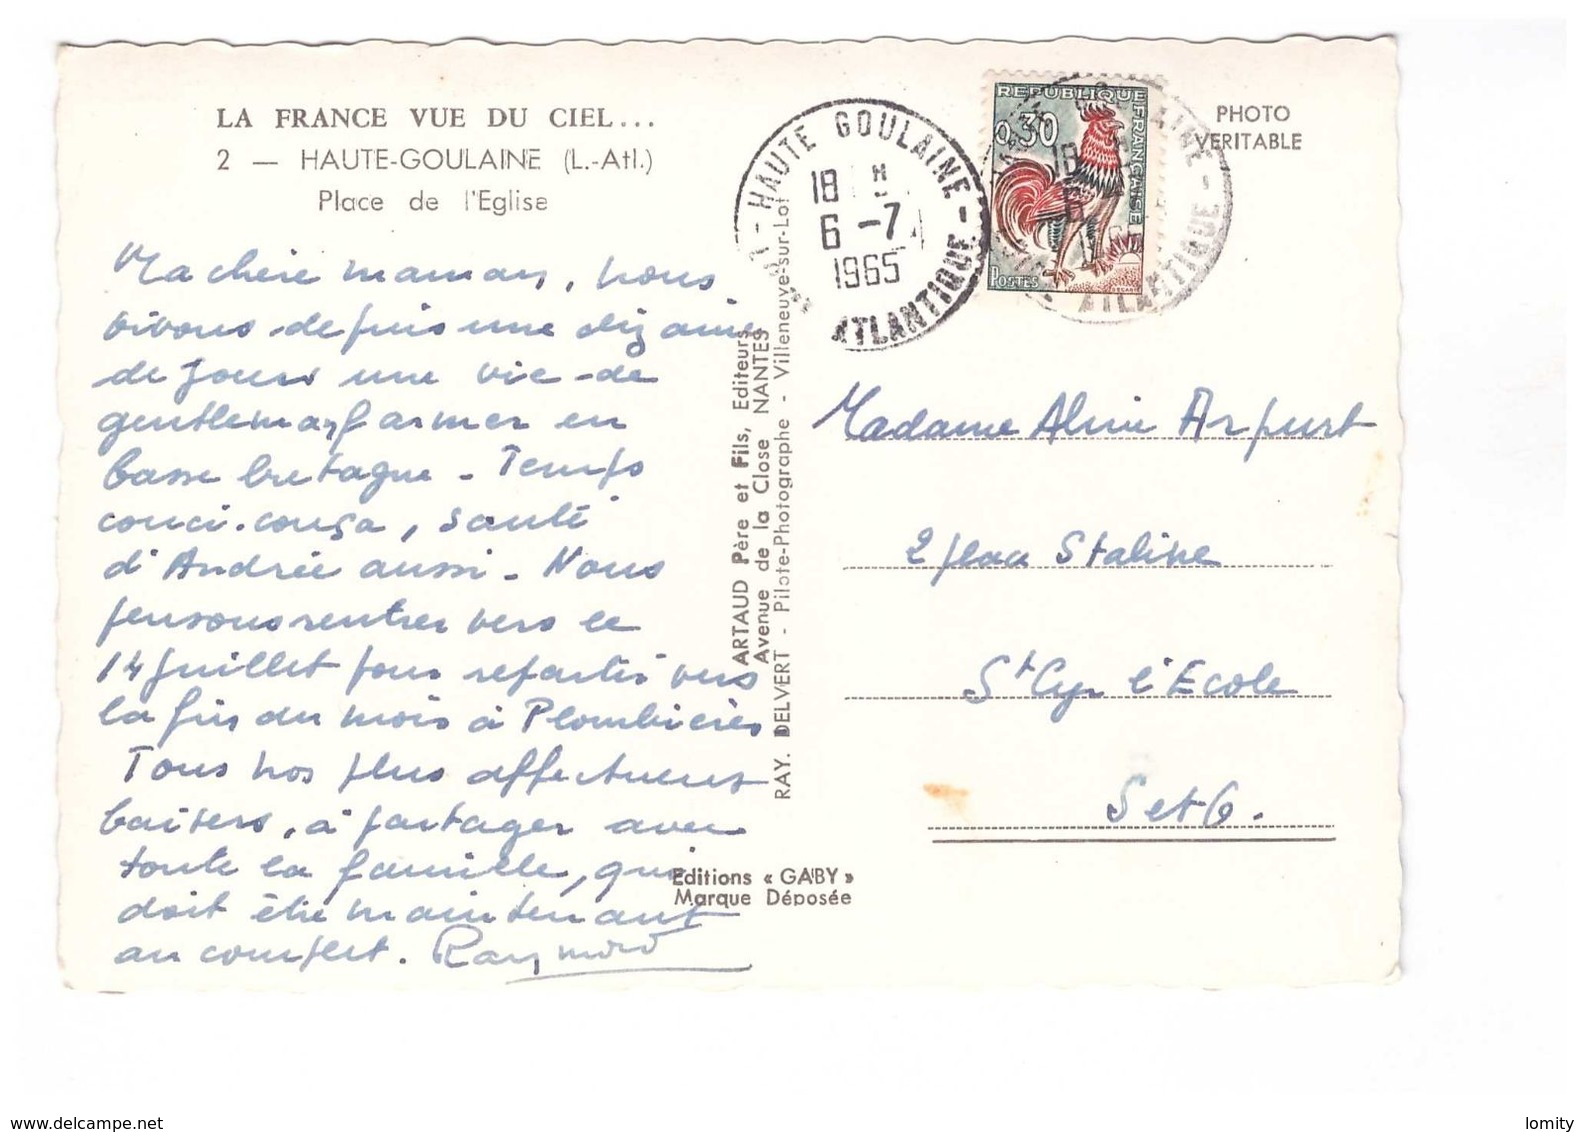 LA FRANCE VUE DU CIEL...
2 — HAUTE-GOULAINE (L.-Atl.)
Place de l'Eglise
Ma chère maman, nous
vivons depuis une dizaine
de jours une vie de
gentlemanfarmer en
basse bretagne - Temps
couci-couça, santé
d'Andrée aussi - Nous
pensons rentrer vers le
14 juillet pour repartir vers
la fin du mois à Plombières
Tous nos plus affectueux
baisers, à partager avec
toute la famille, qui
doit être maintenant
au complet. Raymond
ARTAUD Père et Fils, Editeurs
Avenue de la Close NANTES
RAY. DELVERT - Pilote-Photographe - Villeneuve-sur-Lot
Editions « GABY »
Marque Déposée
HAUTE GOULAINE
18 H
6 - 7
1965
ATLANTIQUE
REPUBLIQUE FRANÇAISE
0,30
POSTES
ATLANTIQUE
PHOTO
VERITABLE
Madame Aline
2 place Staline
St Cyr l'Ecole
S et O.
www.delcampe.net
lomity